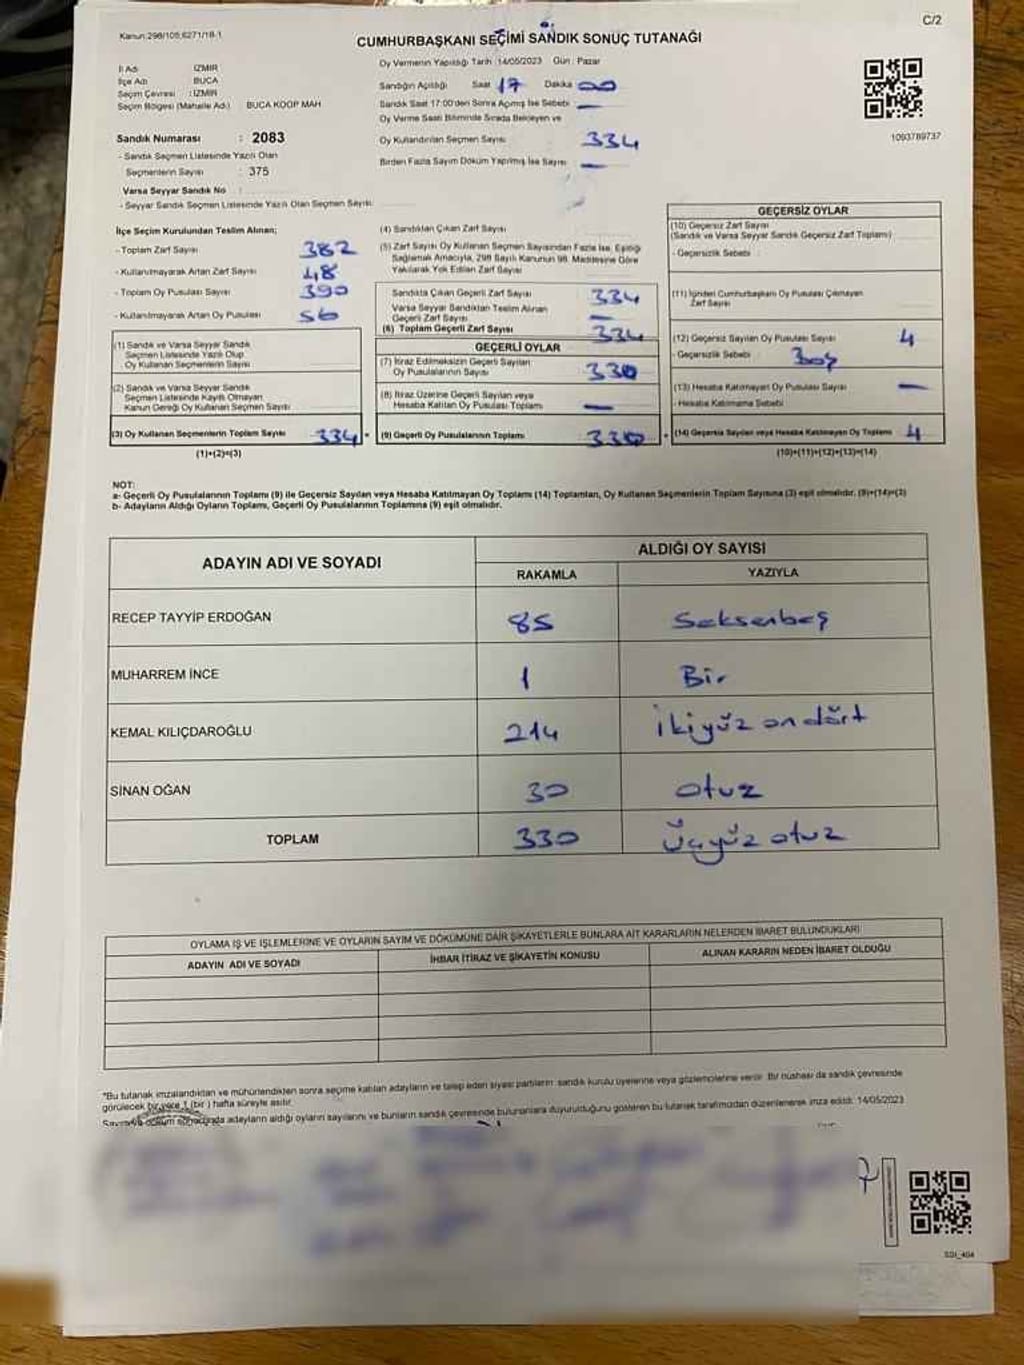 C/2
Kanun:298/105,6271/18-1
CUMHURBAŞKANI SEÇİMİ SANDIK SONUÇ TUTANAĞI
İl Adı : İZMİR
İlçe Adı : BUCA
Seçim Çevresi : İZMİR
Seçim Bölgesi (Mahalle Adı) : BUCA KOOP MAH
Sandık Numarası : 2083
- Sandık Seçmen Listesinde Yazılı Olan
Seçmenlerin Sayısı : 375
Varsa Seyyar Sandık No :
- Seyyar Sandık Seçmen Listesinde Yazılı Olan Seçmen Sayısı:
Oy Vermenin Yapıldığı Tarih :14/05/2023 Gün : Pazar
Sandığın Açıldığı Saat 17 Dakika 00
Sandık Saat 17:00'den Sonra Açılmış İse Sebebi —
Oy Verme Saati Bitiminde Sırada Bekleyen ve
Oy Kullandırılan Seçmen Sayısı 334
Birden Fazla Sayım Döküm Yapılmış İse Sayısı —
1093789737
İlçe Seçim Kurulundan Teslim Alınan;
- Toplam Zarf Sayısı 382
- Kullanılmayarak Artan Zarf Sayısı 48
- Toplam Oy Pusulası Sayısı 390
- Kullanılmayarak Artan Oy Pusulası 56
(1) Sandık ve Varsa Seyyar Sandık
Seçmen Listesinde Yazılı Olup
Oy Kullanan Seçmenlerin Sayısı
(2) Sandık ve Varsa Seyyar Sandık
Seçmen Listesinde Kayıtlı Olmayan
Kanun Gereği Oy Kullanan Seçmen Sayısı
(3) Oy Kullanan Seçmenlerin Toplam Sayısı 334 =
(1)+(2)=(3)
(4) Sandıktan Çıkan Zarf Sayısı
(5) Zarf Sayısı Oy Kullanan Seçmen Sayısından Fazla İse, Eşitliği
Sağlamak Amacıyla, 298 Sayılı Kanunun 98. Maddesine Göre
Yakılarak Yok Edilen Zarf Sayısı
Sandıkta Çıkan Geçerli Zarf Sayısı 334
Varsa Seyyar Sandıktan Teslim Alınan
Geçerli Zarf Sayısı —
(6) Toplam Geçerli Zarf Sayısı 334
GEÇERLİ OYLAR
(7) İtiraz Edilmeksizin Geçerli Sayılan
Oy Pusulalarının Sayısı 330
(8) İtiraz Üzerine Geçerli Sayılan veya
Hesaba Katılan Oy Pusulası Toplamı —
(9) Geçerli Oy Pusulalarının Toplamı 330 +
GEÇERSİZ OYLAR
(10) Geçersiz Zarf Sayısı
(Sandık ve Varsa Seyyar Sandık Geçersiz Zarf Toplamı)
- Geçersizlik Sebebi :
(11) İçinden Cumhurbaşkanı Oy Pusulası Çıkmayan
Zarf Sayısı
(12) Geçersiz Sayılan Oy Pusulası Sayısı 4
- Geçersizlik Sebebi : Boş
(13) Hesaba Katılmayan Oy Pusulası Sayısı —
- Hesaba Katılmama Sebebi
(14) Geçersiz Sayılan veya Hesaba Katılmayan Oy Toplamı 4
(10)+(11)+(12)+(13)=(14)
NOT:
a- Geçerli Oy Pusulalarının Toplamı (9) ile Geçersiz Sayılan veya Hesaba Katılmayan Oy Toplamı (14) Toplamları, Oy Kullanan Seçmenlerin Toplam Sayısına (3) eşit olmalıdır. (9)+(14)=(3)
b- Adayların Aldığı Oyların Toplamı, Geçerli Oy Pusulalarının Toplamına (9) eşit olmalıdır.
ADAYIN ADI VE SOYADI ALDIĞI OY SAYISI
RAKAMLA YAZIYLA
RECEP TAYYİP ERDOĞAN 85 Seksenbeş
MUHARREM İNCE 1 Bir
KEMAL KILIÇDAROĞLU 214 İkiyüz ondört
SİNAN OĞAN 30 otuz
TOPLAM 330 Üçyüz otuz
OYLAMA İŞ VE İŞLEMLERİNE VE OYLARIN SAYIM VE DÖKÜMÜNE DAİR ŞİKAYETLERLE BUNLARA AİT KARARLARIN NELERDEN İBARET BULUNDUKLARI
ADAYIN ADI VE SOYADI İHBAR İTİRAZ VE ŞİKAYETİN KONUSU ALINAN KARARIN NEDEN İBARET OLDUĞU
*Bu tutanak imzalandıktan ve mühürlendikten sonra seçime katılan adayların ve talep eden siyasi partilerin sandık kurulu üyelerine veya gözlemcilerine verilir. Bir nüshası da sandık çevresinde
görülecek bir yere 1 (bir ) hafta süreyle asılır.
Sayım ve döküm sonucunda adayların aldığı oyların sayılarını ve bunların sandık çevresinde bulunanlara duyurulduğunu gösteren bu tutanak tarafımızdan düzenlenerek imza edildi. 14/05/2023